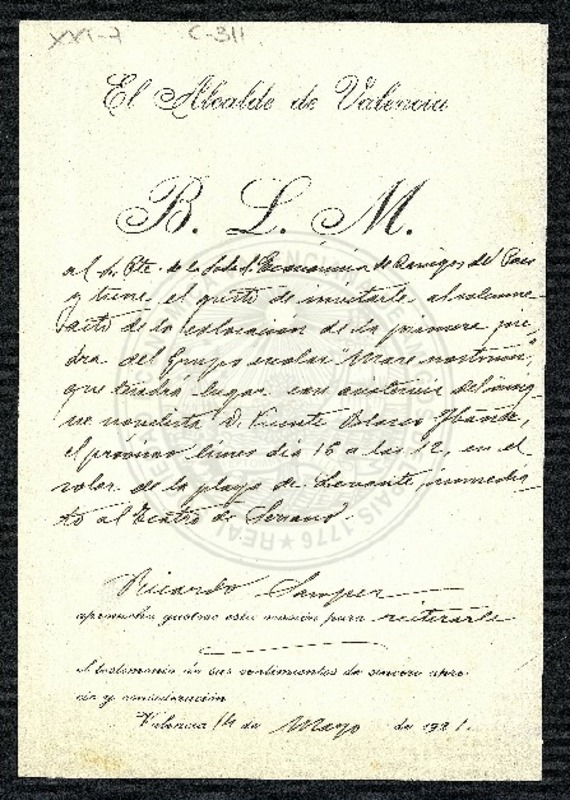 XXI-7 C-311
El Alcalde de Valencia
B. L. M.
al Sr. Pte. de la Socd. Económica de Amigos del País
y tiene el gusto de invitarle al solemne
acto de la colocación de la primera pie-
dra del Grupo escolar "Mare nostrum",
que tendrá lugar con asistencia del insig-
ne novelista D. Vicente Blasco Ibáñez,
el próximo lunes día 16 a las 12, en el
solar de la playa de Levante, inmedia-
to al Teatro de Serrano.
Ricardo Samper
aprovecha gustoso esta ocasión para reiterarle
el testimonio de sus sentimientos de sincero apre-
cio y consideración
Valencia 14 de Mayo de 1921.
REAL SOCIEDAD ECONÓMICA VALENCIANA DE AMIGOS DEL PAIS 1776